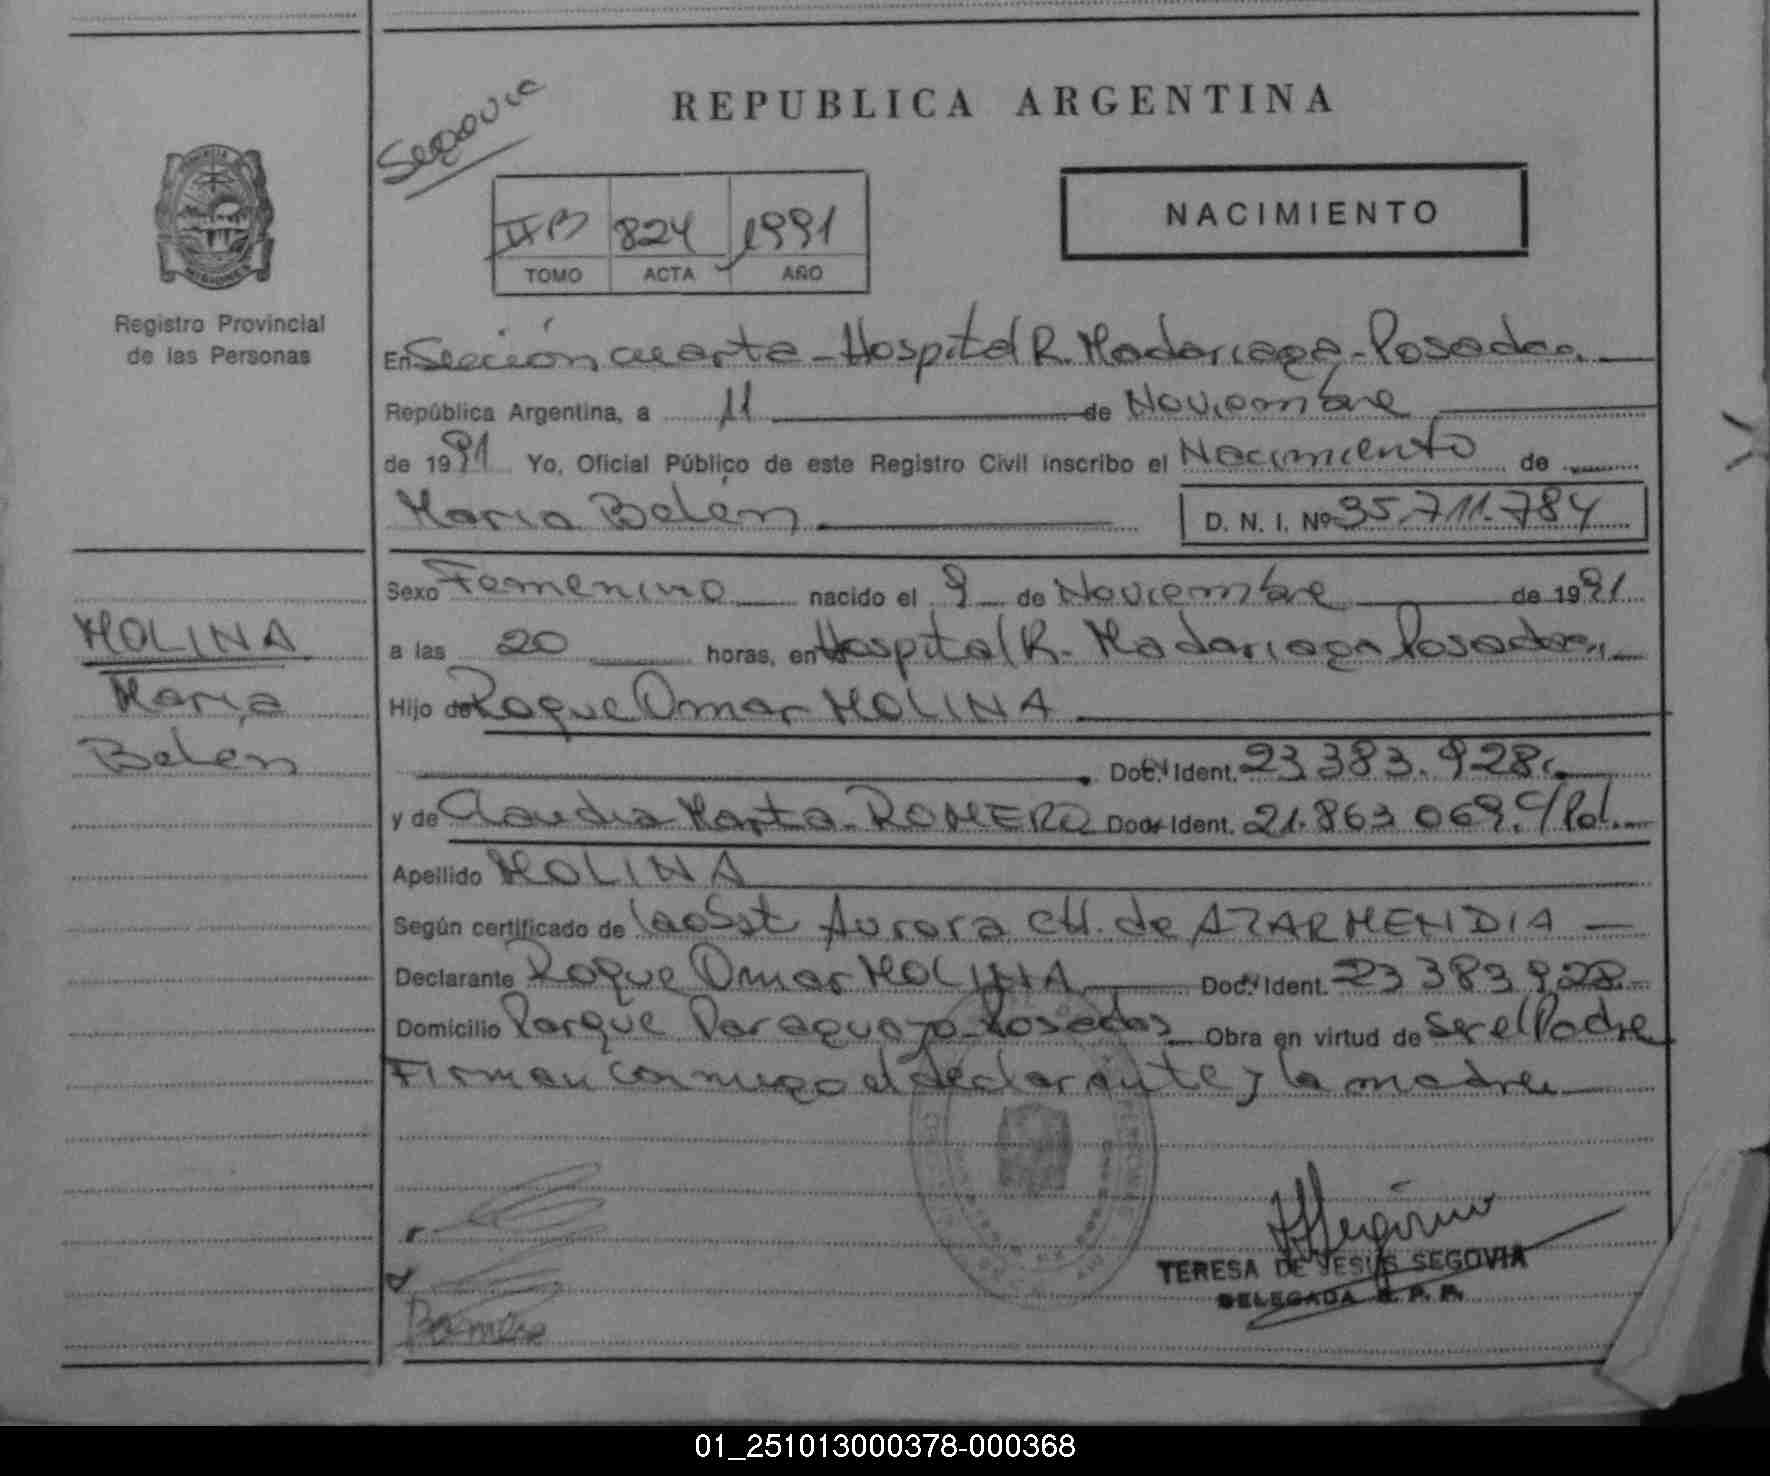 REPUBLICA ARGENTINA
Segovia
NACIMIENTO
IIB 824 1991
TOMO ACTA AÑO
MISIONES
Registro Provincial
de las Personas
En Sección cuarta - Hospital R. Madariaga - Posadas.
República Argentina, a 11 de Noviembre
de 1991 Yo, Oficial Público de este Registro Civil inscribo el Nacimiento de
María Belén D. N. I. Nº 35.711.784
Sexo Femenino nacido el 9 de Noviembre de 1991
a las 20 horas, en Hospital R. Madariaga Posadas
Hijo de Roque Omar MOLINA
Doc. Ident. 23.383.928
y de Claudia Marta ROMERO Doc. Ident. 21.863.069. C/Pol.
Apellido MOLINA
Según certificado de la obst Aurora CH. de AZARMENDIA
Declarante Roque Omar MOLINA Doc. Ident. 23 383 928
Domicilio Parque Paraguayo - Posadas Obra en virtud de ser el Padre
Firman conmigo el declarante y la madre
MOLINA
María
Belén
TERESA DE JESUS SEGOVIA
DELEGADA R. P. P.
01_251013000378-000368